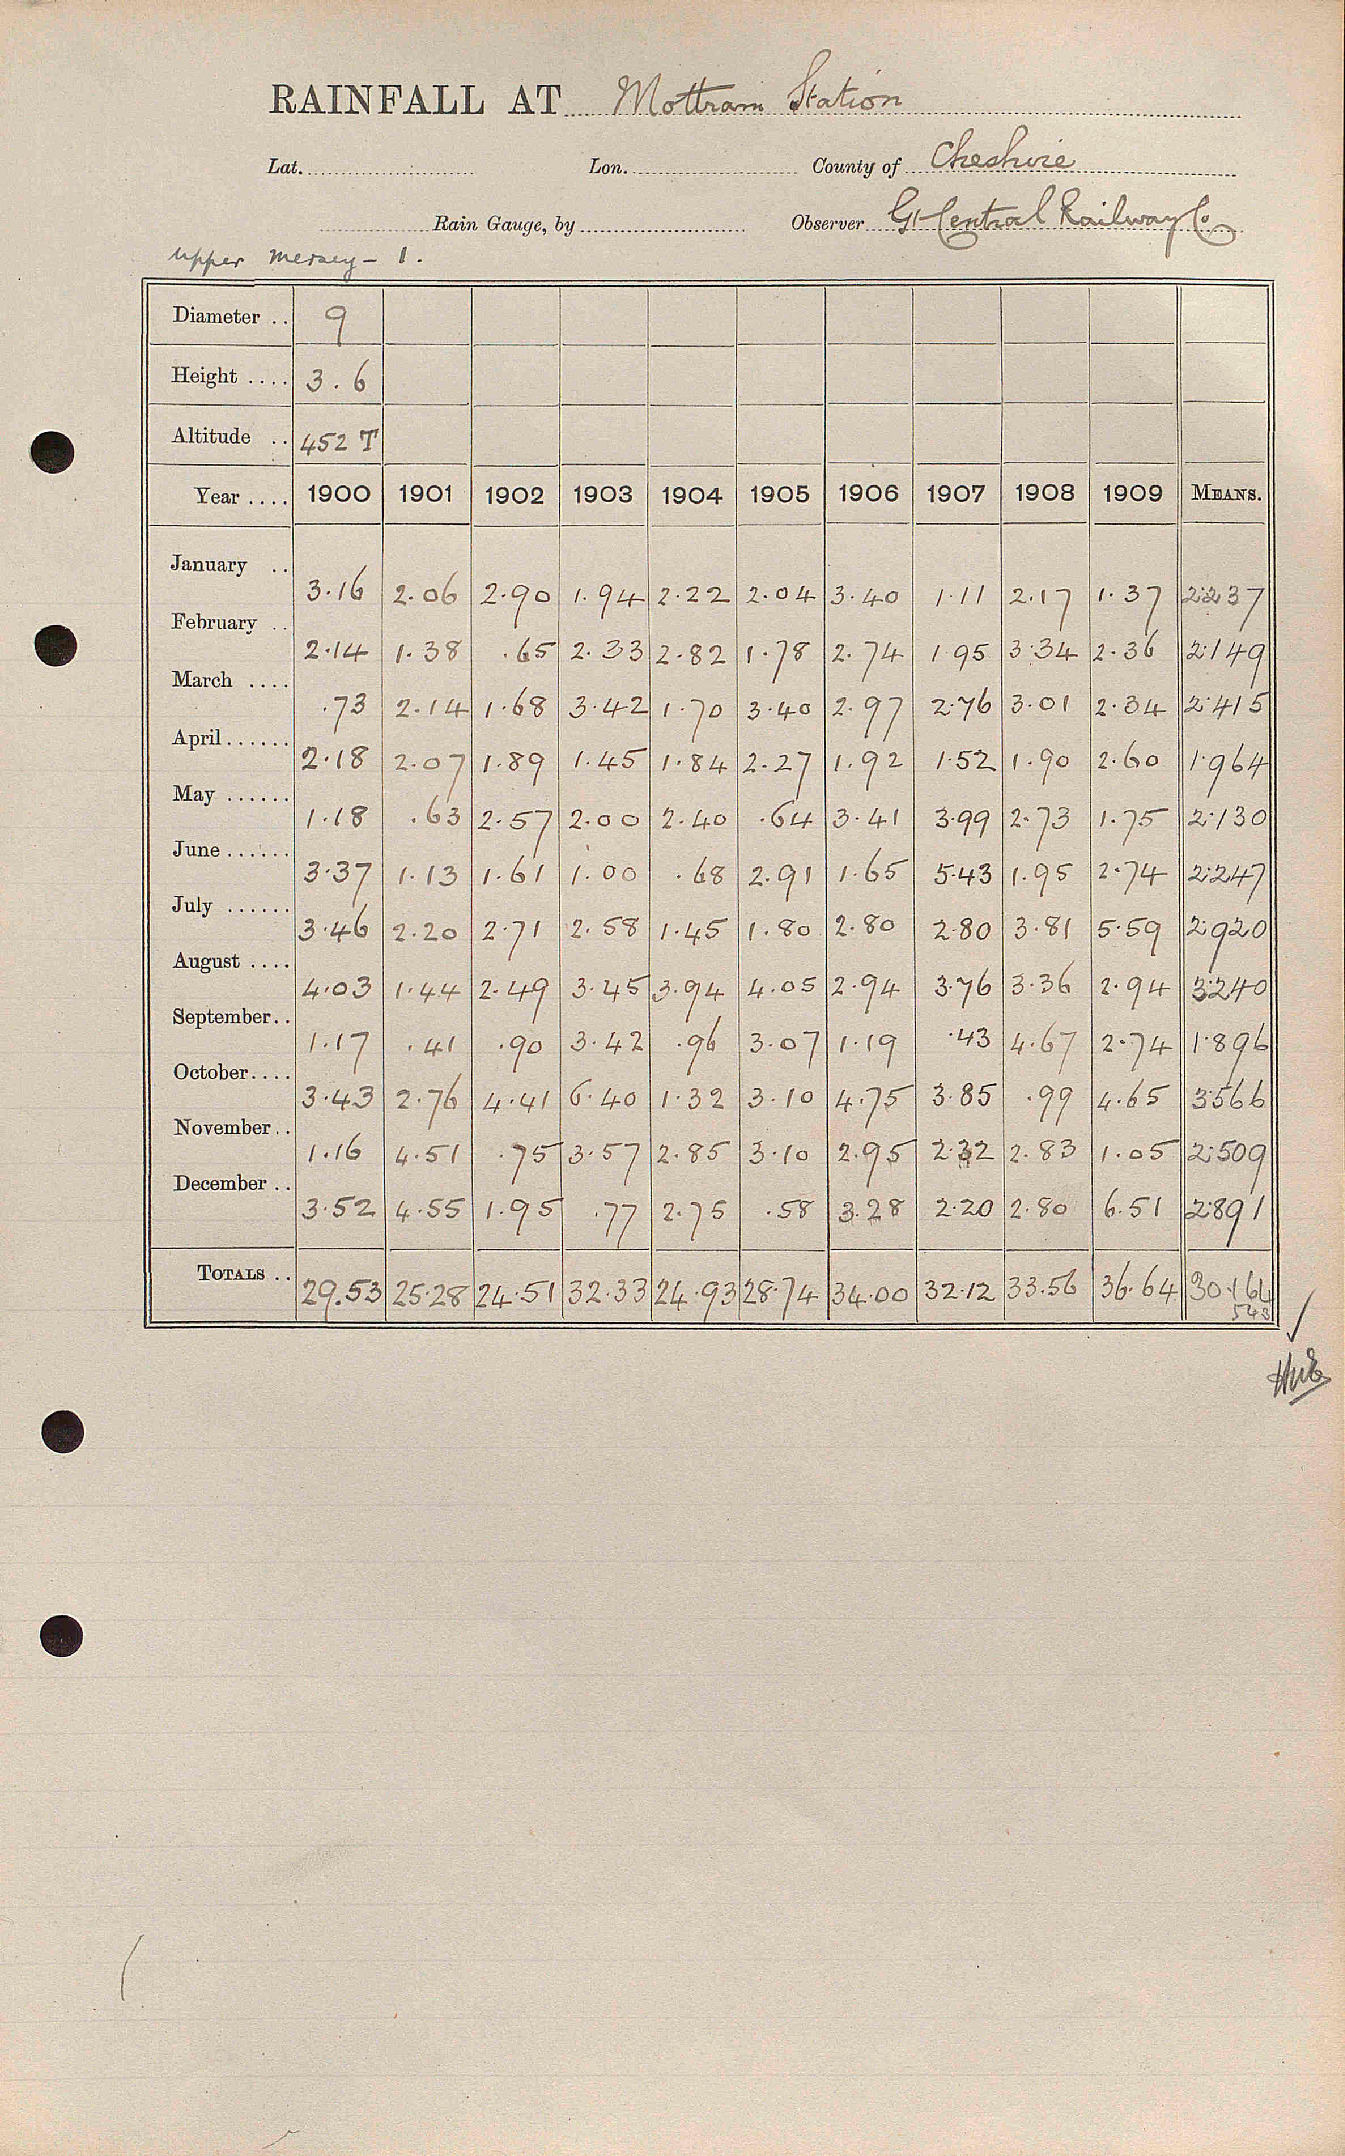 RAINFALL AT Mottram Station
Lat. Lon. County of Cheshire
Rain Gauge, by Observer Gt Central Railway Co
Upper Mersey - 1.
Diameter .. 9
Height .... 3.6
Altitude .. 452 T
Year .... 1900 1901 1902 1903 1904 1905 1906 1907 1908 1909 MEANS.
January .. 3.16 2.06 2.90 1.94 2.22 2.04 3.40 1.11 2.17 1.37 2.237
February .. 2.14 1.38 .65 2.33 2.82 1.78 2.74 1.95 3.34 2.36 2.149
March .... .73 2.14 1.68 3.42 1.70 3.40 2.97 2.76 3.01 2.34 2.415
April...... 2.18 2.07 1.89 1.45 1.84 2.27 1.92 1.52 1.90 2.60 1.964
May ...... 1.18 .63 2.57 2.00 2.40 .64 3.41 3.99 2.73 1.75 2.130
June ...... 3.37 1.13 1.61 1.00 .68 2.91 1.65 5.43 1.95 2.74 2.247
July ...... 3.46 2.20 2.71 2.58 1.45 1.80 2.80 2.80 3.81 5.59 2.920
August .... 4.03 1.44 2.49 3.45 3.94 4.05 2.94 3.76 3.36 2.94 3.240
September.. 1.17 .41 .90 3.42 .96 3.07 1.19 .43 4.67 2.74 1.896
October.... 3.43 2.76 4.41 6.40 1.32 3.10 4.75 3.85 .99 4.65 3.566
November.. 1.16 4.51 .75 3.57 2.85 3.10 2.95 2.32 2.83 1.05 2.509
December .. 3.52 4.55 1.95 .77 2.75 .58 3.28 2.20 2.80 6.51 2.891
TOTALS .. 29.53 25.28 24.51 32.33 24.93 28.74 34.00 32.12 33.56 36.64 30.164